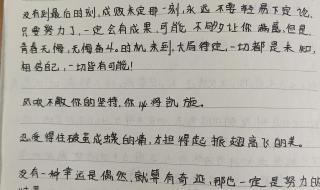 没有到最后时刻,成败未定那一刻,永远不要轻易下定论,
只要努力了,一定会有成果,可能不够让你满意,但是
青春无悔,无悔奋斗。时机未到,大局待定,一切都是未知,
相信自己,一切皆有可能!
风吹不散你的坚持,你必将凯旋。
忍受得住破茧成蝶的痛,才担得起振翅高飞的美。
没有一种幸运是偶然,就算有奇迹,那也一定是努力的